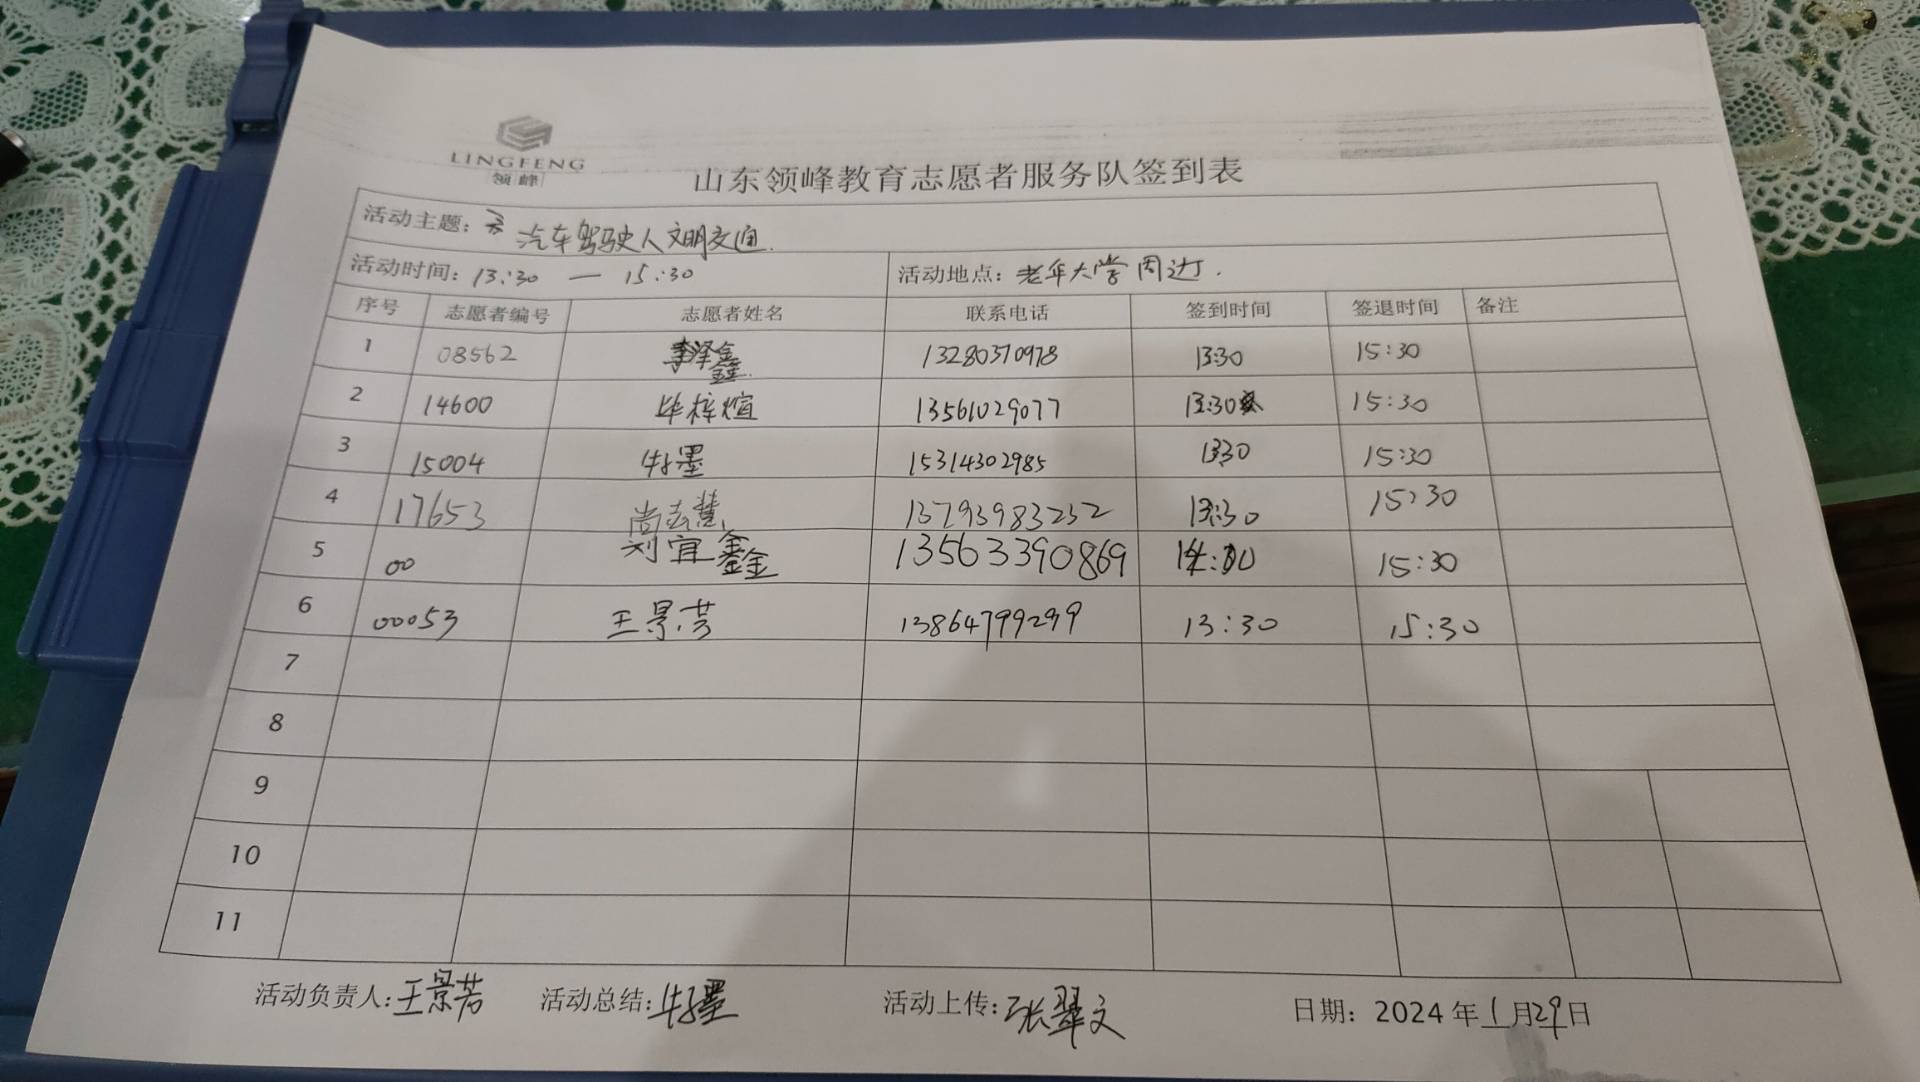 LINGFENG
领峰
山东领峰教育志愿者服务队签到表
活动主题: 汽车驾驶人文明交通.
活动时间: 13:30 — 15:30 活动地点: 老年大学周边.
序号 志愿者编号 志愿者姓名 联系电话 签到时间 签退时间 备注
1 08562 李泽鑫 13280370978 13:30 15:30
2 14600 毕梓煊 13561029077 13:30 15:30
3 15004 牛墨 15314302985 13:30 15:30
4 17653 尚志慧 13793983232 13:30 15:30
5 00 刘宜鑫 13563390869 15:30
6 00053 王景芳 13864799299 13:30 15:30
7
8
9
10
11
活动负责人: 王景芳 活动总结: 牛墨 活动上传: 张翠文 日期: 2024年1月29日